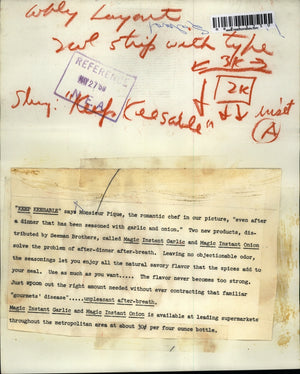 Layout
strip with type
3K
2K
REFERENCE
N.E.A.
"Keep Keesable"
inset
A
"KEEP KEESABLE" says Monsieur Pique, the romantic chef in our picture, "even after
a dinner that has been seasoned with garlic and onion." Two new products, dis-
tributed by Seeman Brothers, called Magic Instant Garlic and Magic Instant Onion
solve the problem of after-dinner after-breath. Leaving no objectionable odor,
the seasonings let you enjoy all the natural savory flavor that the spices add to
your meal. Use as much as you want..... The flavor never becomes too strong.
Just spoon out the right amount needed without ever contracting that familiar
"gourmets' disease".....unpleasant after-breath.
Magic Instant Garlic and Magic Instant Onion is available at leading supermarkets
throughout the metropolitan area at about 30¢ per four ounce bottle.